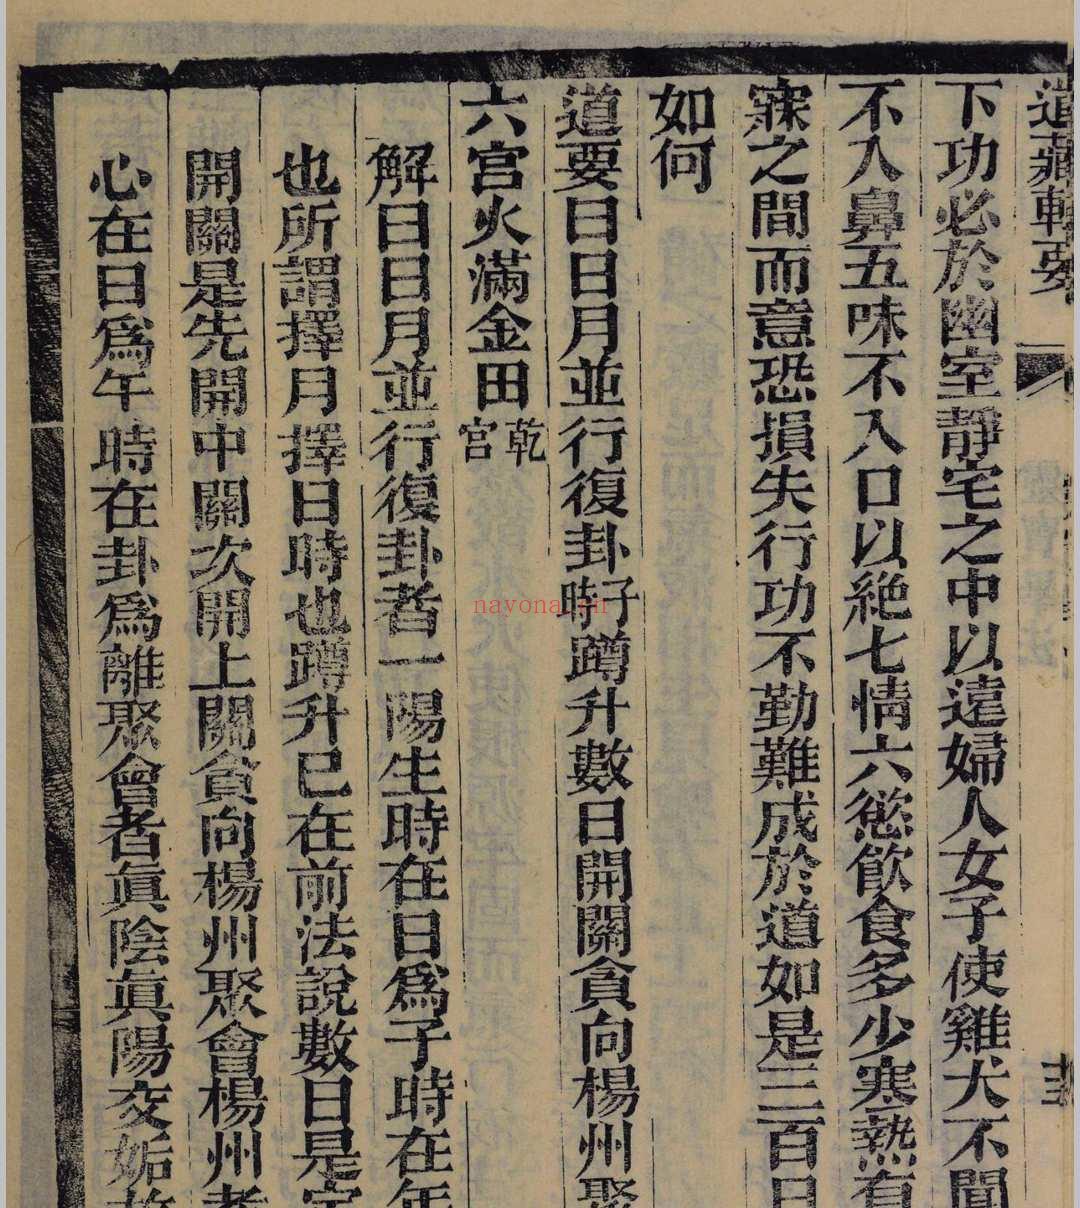 道藏輯要
下功必於幽室靜宅之中以遠婦人女子使雞犬不聞
不入鼻五味不入口以絶七情六慾飮食多少寒熱有
寐之間而意恐損失行功不勤難成於道如是三百日
如何
道要曰日月並行復卦子時蹲升數日開關貪向楊州聚
六宮火滿金田乾宮
解曰日月並行復卦者一陽生時在日爲子時在年
也所謂擇月擇日時也蹲升已在前法說數日是定
開關是先開中關次開上關貪向楊州聚會楊州者
心在日爲午時在卦爲離聚會者眞陰眞陽交姤
nayona.cn